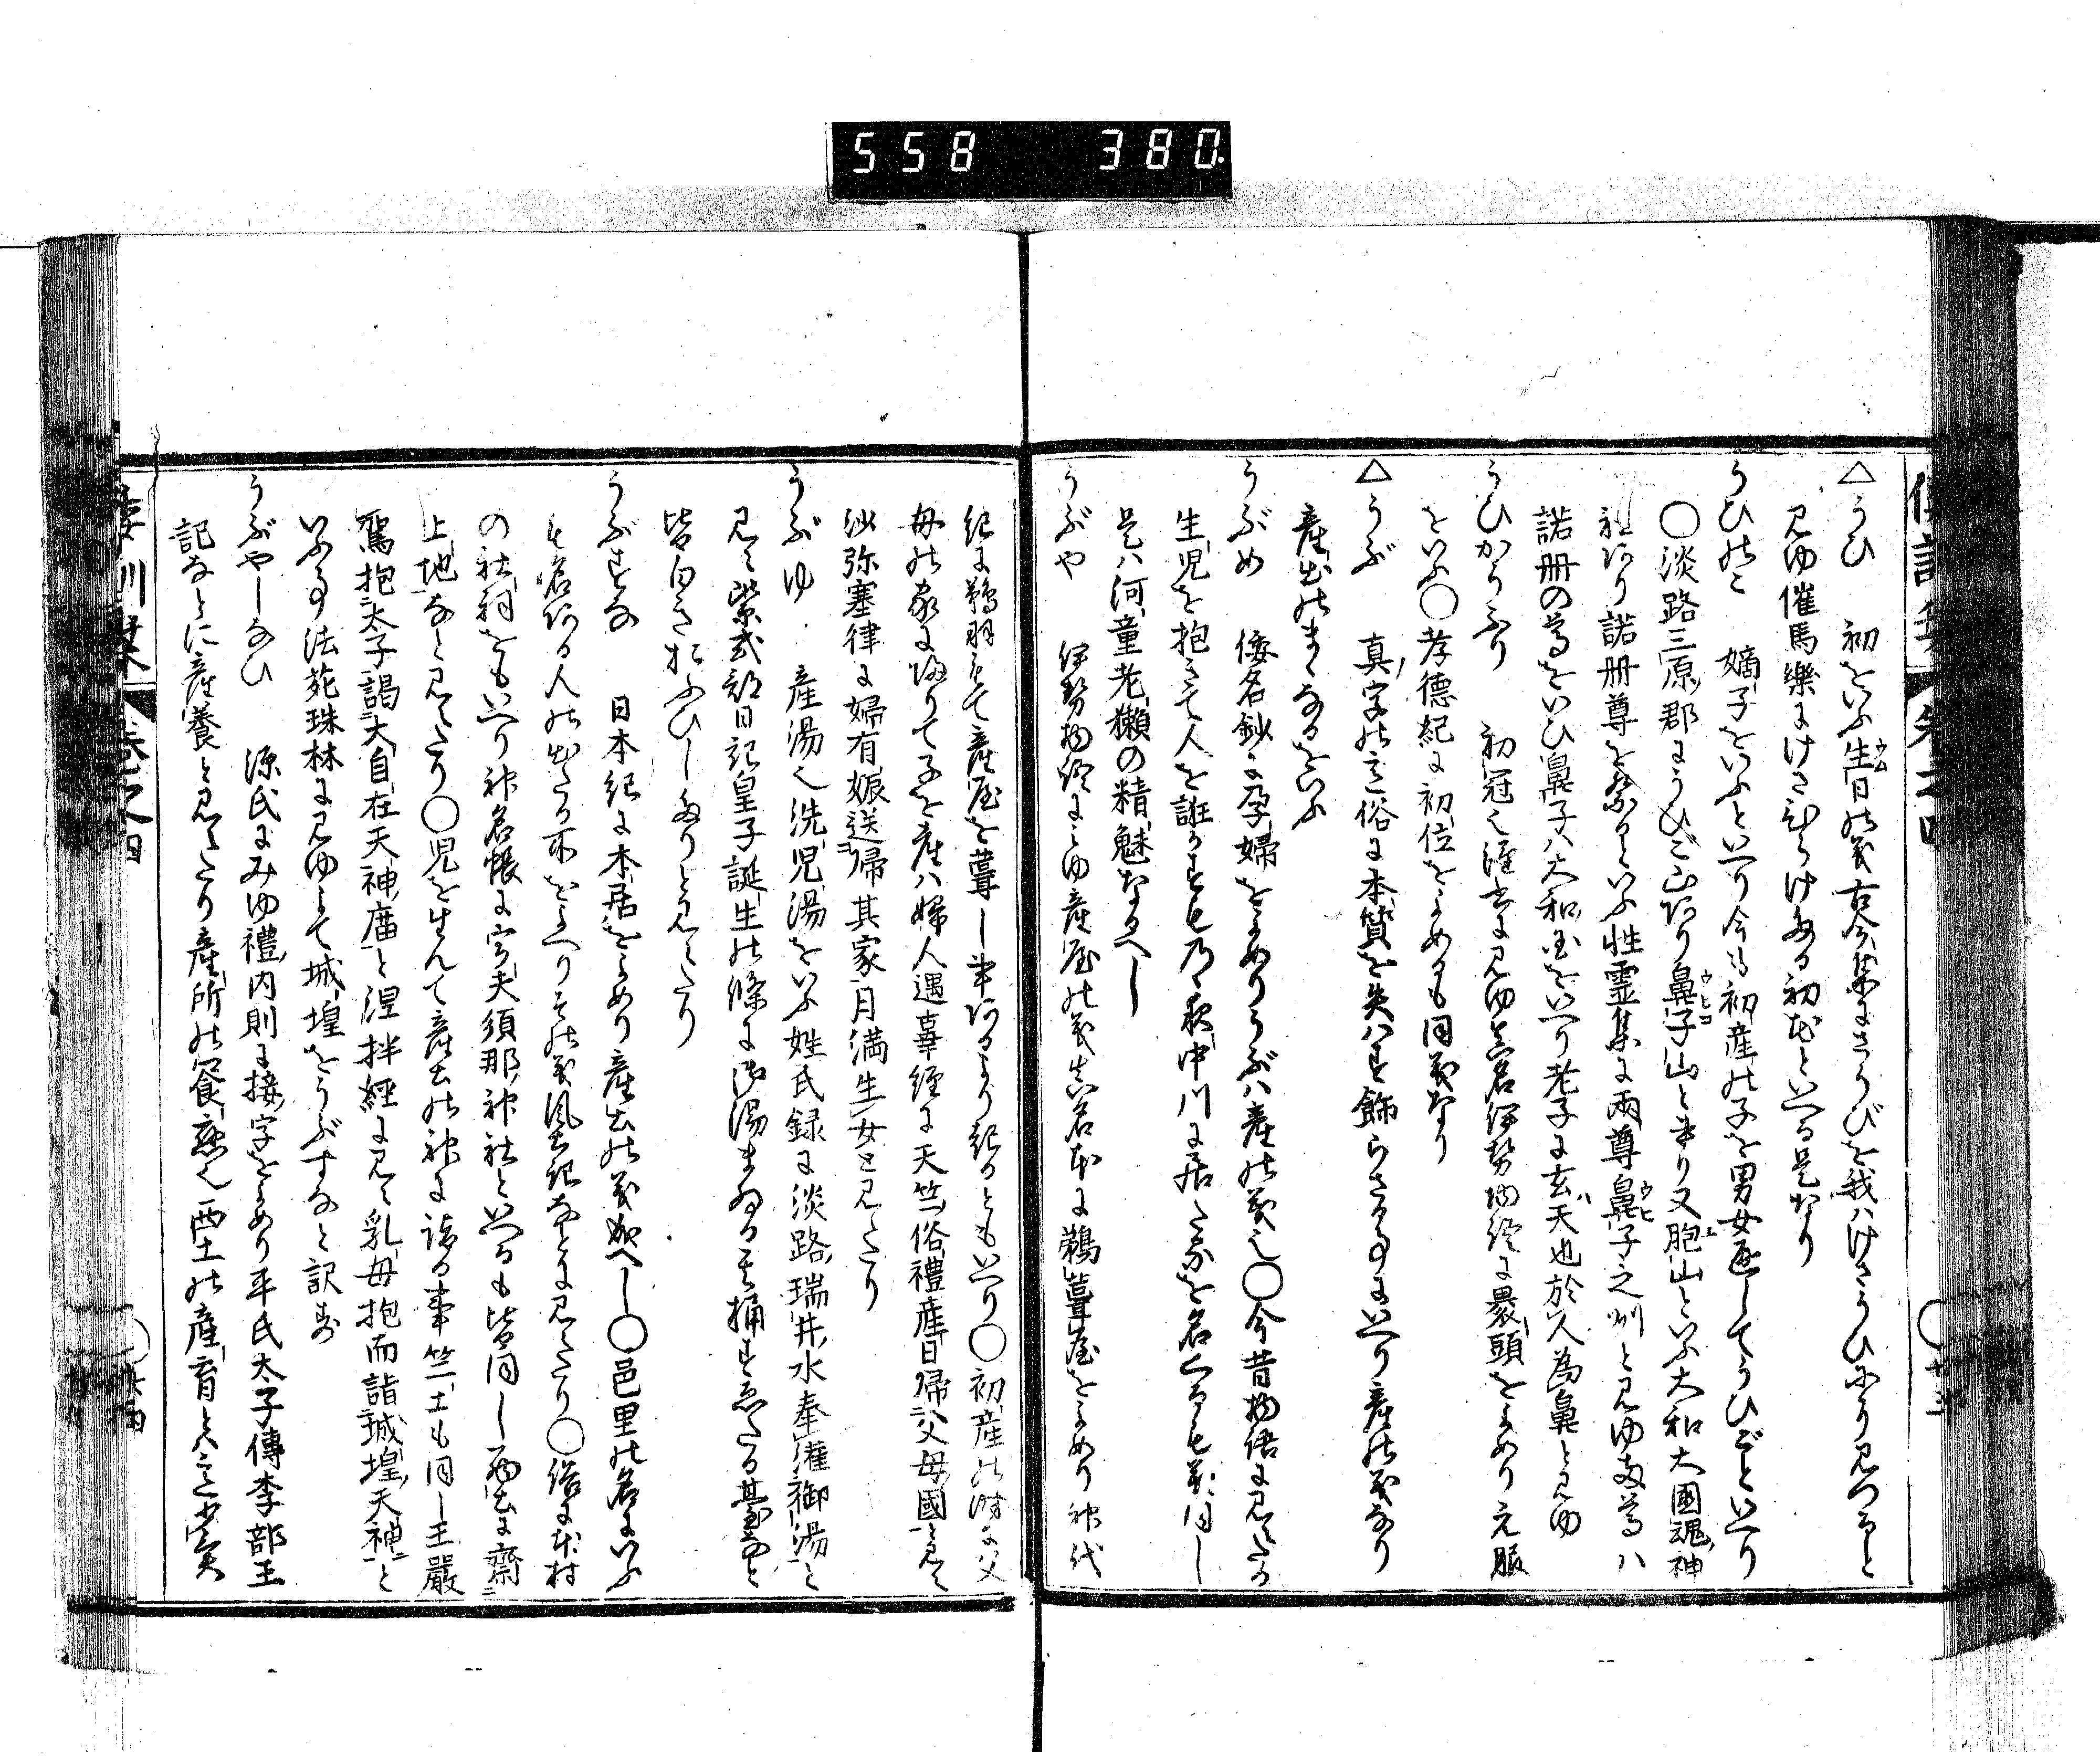 558 380
△うひ 初をいふ生日の義古今集にさうびを我ハけさうひにそ見つると
見ゆ催馬樂にけさむらけたる初花といへる是なり
うひのこ 嫡子をいふといへり今も初産の子を男女通してうひごといへり
○淡路三原郡にうひこ山あり鼻子山とかけり又胞山といふ大和大國魂神
社あり諾册尊を祭るといふ性霊集に兩尊鼻子之州と見ゆ兩尊ハ
諾册の尊をいひ鼻子ハ大和国をいへり老子に玄天也於人為鼻と見ゆ
うひかうふり 初冠也漢書に見ゆ真名伊勢物語に褁頭をよめり元服
をいふ○孝德紀に初位をよめるも同義なり
△うぶ 真字の意俗に本質を失ハす飾らさる事にいへり産の義なり
産出のまゝなるをいふ
うぶめ 倭名鈔に孕婦をよめりうぶハ産の義也○今昔物語に見えたる
生児を抱きて人を誑かすもの 中川に居 を名くるも義同し
是ハ河童老獺の精魅なるへし
うぶや 伊勢物語にみゆ産屋の義真名本に鵜葺屋をよめり神代
紀に鵜羽をもて産屋を葺し事あるより起るともいへり○初産の時に父
母の家に帰りて子を産ハ婦人遇辜経に天竺俗禮産日帰父母國と見え
沙弥塞律に婦有娠送帰其家月満生女と見えたり
うぶゆ 産湯也洗児湯をいふ姓氏録に淡路瑞井水奉灌御湯と
見え紫式部日記皇子誕生の條に御湯まゐる 桶すゑたる臺なと
皆白きおほひしたりと見えたり
うぶすな 日本紀に本居をよめり産出の義成へし○邑里の名にいふ
も名ある人の出たる所をいへりその義風土記なとに見えたり○俗に本村
の社祠をもいへり神名帳に宇夫須那神社といへるも皆同し 齋
上地なと見えたり○児を生んて産土の神に詣る事竺土も同し王嚴
駕抱太子謁大自在天神庿と涅拌經に見え乳母抱而詣城堭天神と
いふ事法苑珠林に見ゆよて城堭をうぶすなと訳す
うぶやしなひ 源氏にみゆ禮内則に接字をよめり平氏太子傳李部王
記なとに産養と見えたり産所の饗應也西土の産育といふ